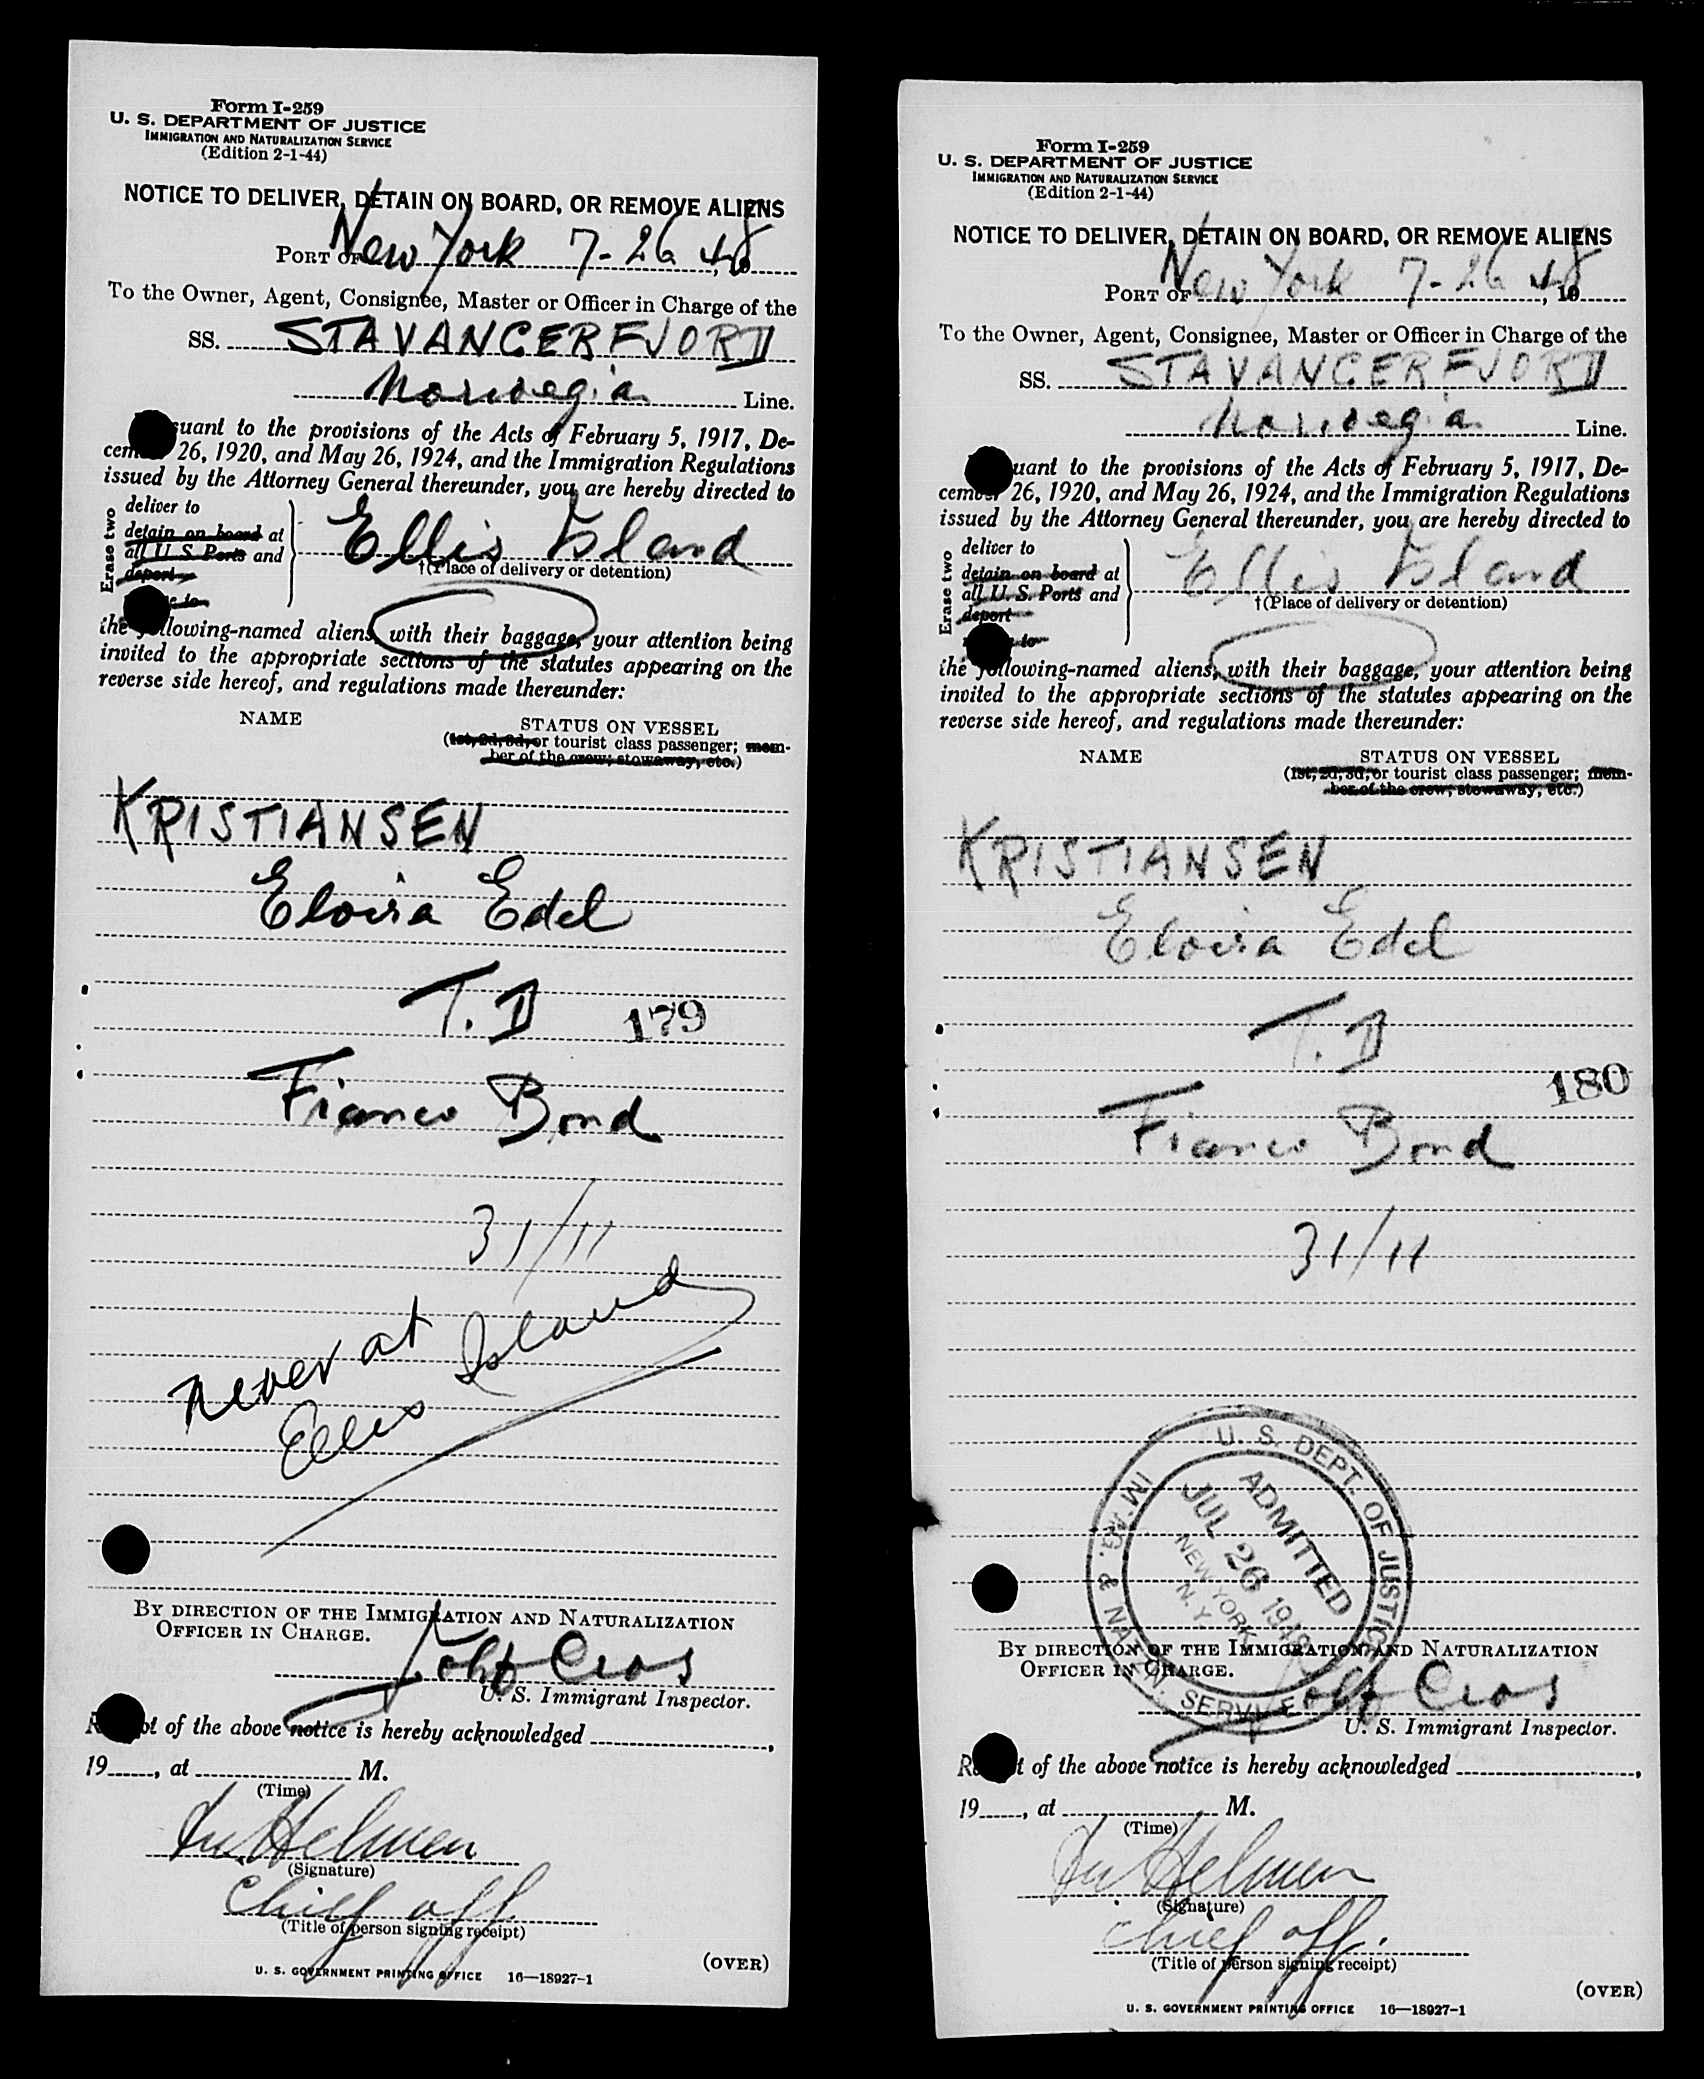 Form I-259
U. S. DEPARTMENT OF JUSTICE
IMMIGRATION AND NATURALIZATION SERVICE
(Edition 2-1-44)
NOTICE TO DELIVER, DETAIN ON BOARD, OR REMOVE ALIENS
PORT OF New York 7-26 48, 19
To the Owner, Agent, Consignee, Master or Officer in Charge of the
SS. STAVANGERFJORD
Norwegian Line.
suant to the provisions of the Acts of February 5, 1917, De-
cem 26, 1920, and May 26, 1924, and the Immigration Regulations
issued by the Attorney General thereunder, you are hereby directed to
Erase two
deliver to
detain on board at
all U. S. Ports and
deport
e to
Ellis Island
†(Place of delivery or detention)
the following-named aliens, with their baggage, your attention being
invited to the appropriate sections of the statutes appearing on the
reverse side hereof, and regulations made thereunder:
NAME STATUS ON VESSEL
(1st, 2d, 3d, or tourist class passenger; mem-
ber of the crew; stowaway, etc.)
KRISTIANSEN
Eloisa Edel
T. D 179
Fiance Bond
31/11
Never at
Ellis Island
BY DIRECTION OF THE IMMIGRATION AND NATURALIZATION
OFFICER IN CHARGE.
U. S. Immigrant Inspector.
R pt of the above notice is hereby acknowledged ,
19 , at M.
(Time)
Helmen
(Signature)
Chief off.
(Title of person signing receipt)
(OVER)
U. S. GOVERNMENT PRINTING OFFICE 16—18927-1
Form I-259
U. S. DEPARTMENT OF JUSTICE
IMMIGRATION AND NATURALIZATION SERVICE
(Edition 2-1-44)
NOTICE TO DELIVER, DETAIN ON BOARD, OR REMOVE ALIENS
PORT OF New York 7-26 48, 19
To the Owner, Agent, Consignee, Master or Officer in Charge of the
SS. STAVANGERFJORD
Norwegian Line.
uant to the provisions of the Acts of February 5, 1917, De-
cember 26, 1920, and May 26, 1924, and the Immigration Regulations
issued by the Attorney General thereunder, you are hereby directed to
Erase two
deliver to
detain on board at
all U. S. Ports and
deport
to
Ellis Island
†(Place of delivery or detention)
the following-named aliens, with their baggage, your attention being
invited to the appropriate sections of the statutes appearing on the
reverse side hereof, and regulations made thereunder:
NAME STATUS ON VESSEL
(1st, 2d, 3d, or tourist class passenger; mem-
ber of the crew; stowaway, etc.)
KRISTIANSEN
Eloisa Edel
T. D
180
Fiance Bond
31/11
U. S. DEPT. OF JUSTICE
IMM'G. & NATZN. SERVICE
ADMITTED
JUL 26 1948
NEW YORK
N. Y.
BY DIRECTION OF THE IMMIGRATION AND NATURALIZATION
OFFICER IN CHARGE.
U. S. Immigrant Inspector.
Re t of the above notice is hereby acknowledged ,
19 , at M.
(Time)
Helmen
(Signature)
Chief off.
(Title of person signing receipt)
(OVER)
U. S. GOVERNMENT PRINTING OFFICE 16—18927-1